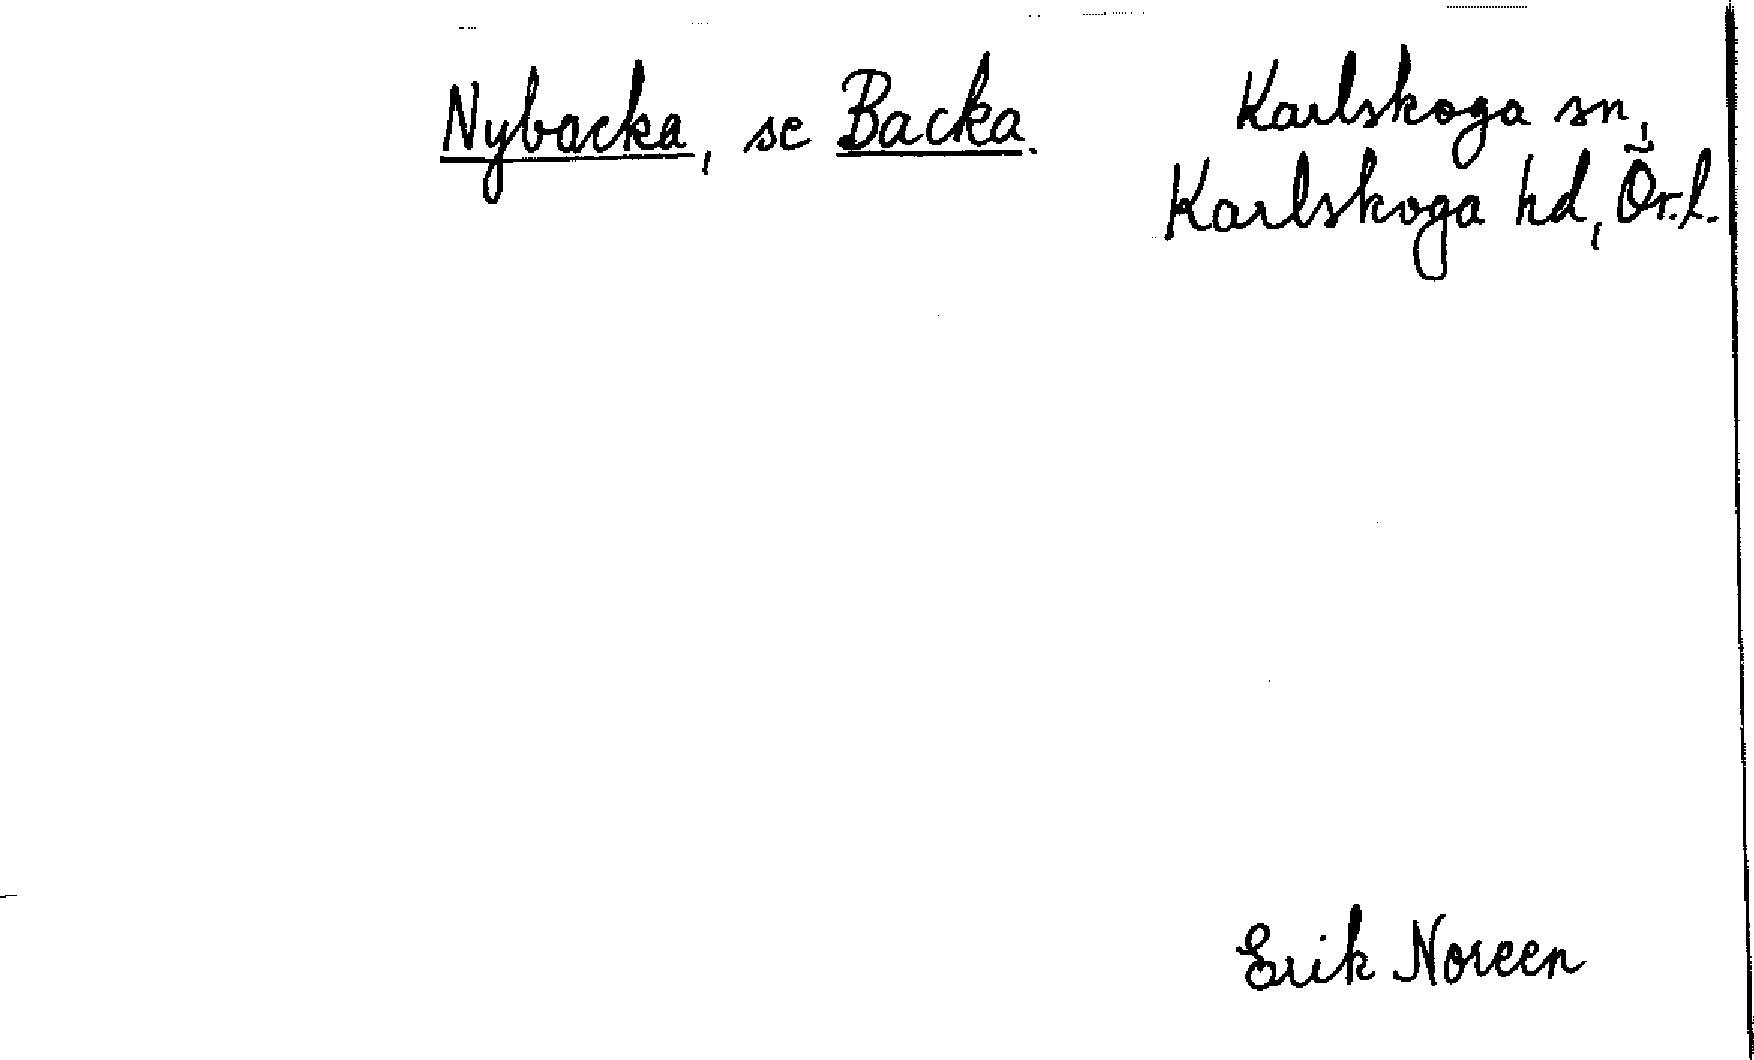 Nybacka, se Backa.
Karlskoga sn,
Karlskoga hd, Ör.l.
Erik Noreen